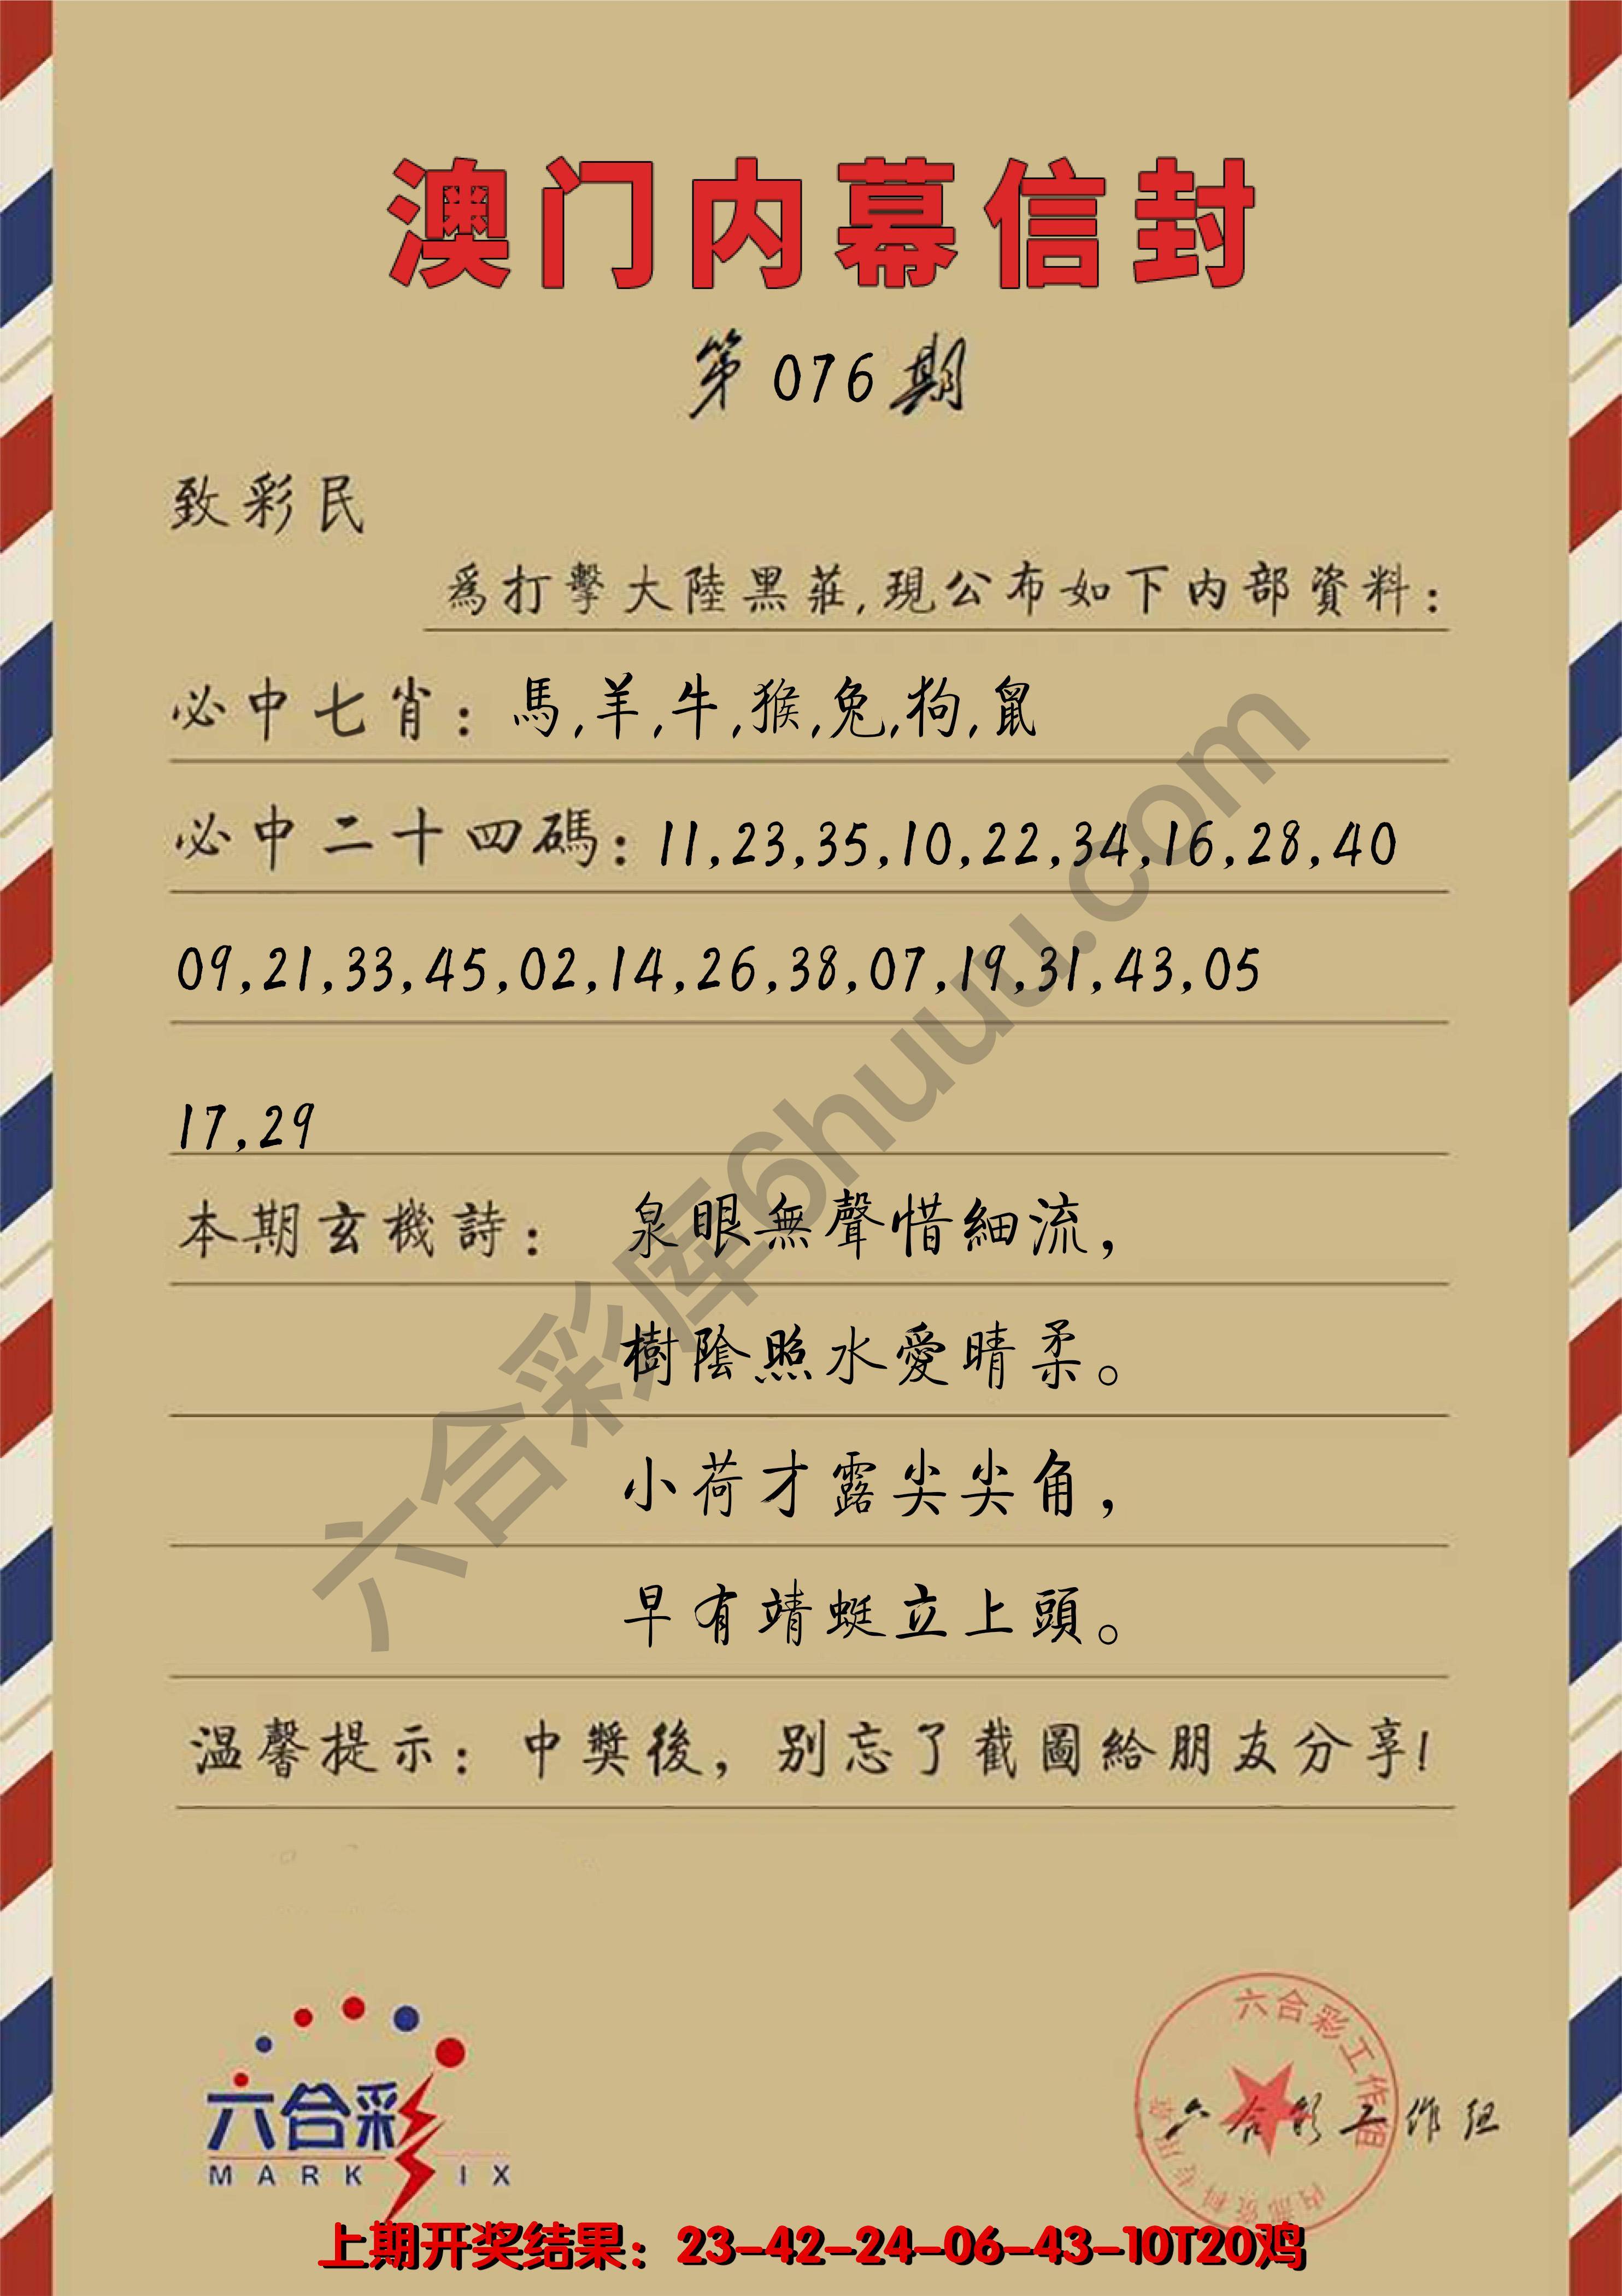 澳门内幕信封
第076期
致彩民
爲打擊大陸黑莊,現公布如下内部資料:
必中七肖: 馬,羊,牛,猴,兔,狗,鼠
必中二十四碼: 11,23,35,10,22,34,16,28,40
09,21,33,45,02,14,26,38,07,19,31,43,05
17,29
本期玄機詩: 泉眼無聲惜細流,
樹陰照水愛晴柔。
小荷才露尖尖角,
早有蜻蜓立上頭。
温馨提示: 中獎後, 别忘了截圖給朋友分享!
六合彩库6huuu.com
六合彩
MARK IX
六合彩工作组
内部资料专用章
六合彩工作组
上期开奖结果: 23-42-24-06-43-10T20鸡